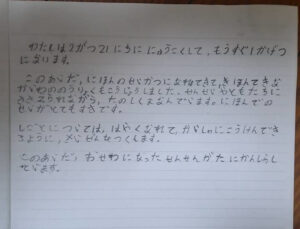 わたしは2がつ21にちに にゅうこくして, もうすぐ1かげつ
になります。
このあいだ, にほんのせいかつになれてきて, きほんてきな
がわののうりょくもこうじょうしました。せんせいやともだちに
ささえられながら, たのしくまなんでいます。にほんでの
せいかとてもすきです。
しごとについては, はやくなれて, かいしゃにこうけんでき
るように, ぜんをつくします。
このあいだ おせわになった せんせいがたにかんしゃし
ています。